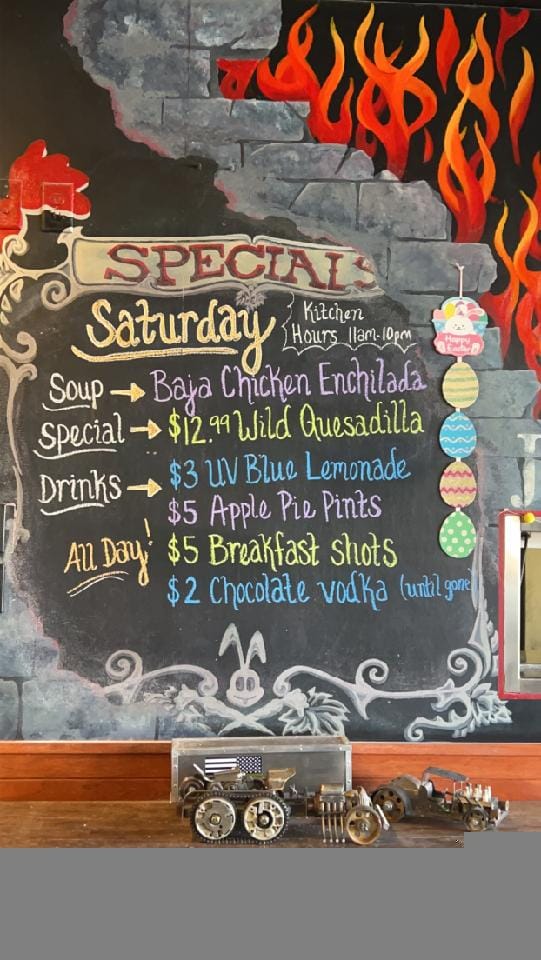 SPECIALS
Saturday
Kitchen
Hours 11am-10pm
Happy
Easter
Soup → Baja Chicken Enchilada
Special → $12.99 Wild Quesadilla
Drinks → $3 UV Blue Lemonade
$5 Apple Pie Pints
All Day! $5 Breakfast shots
$2 Chocolate vodka (until gone)